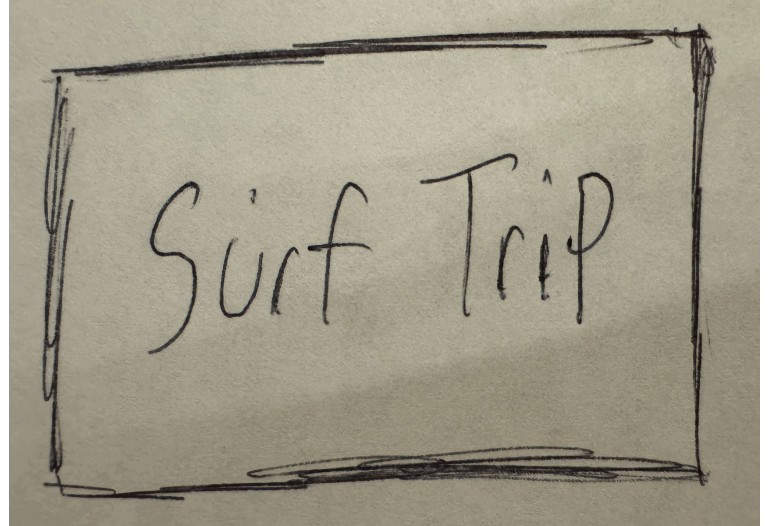 Surf Trip